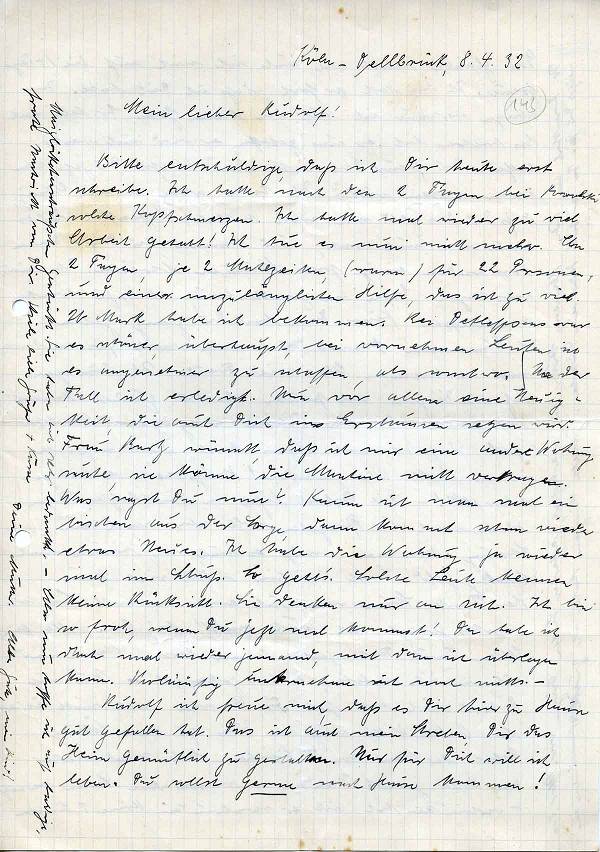 Köln-Dellbrück, 8. 4. 32
143
Mein lieber Rudolf!
Bitte entschuldige, daß ich Dir heute erst
schreibe. Ich hatte nach den 2 Tagen bei
solche Kopfschmerzen. Ich hatte mal wieder zu viel
Arbeit gehabt! Ich tue es nun nicht mehr. An
2 Tagen, je 2 Mahlzeiten, (warm) für 22 Personen,
und einer unzulänglichen Hilfe, das ist zu viel.
20 Mark habe ich bekommen. Bei war
es schöner, überhaupt, bei vornehmen Leuten ist
es angenehmer zu schaffen, als sonstwo. der
Fall ist erledigt. Nun vor allem eine Neuig-
keit die auch Dich ins Erstaunen setzen wird.
Frau wünscht, daß ich mir eine andere Wohnung
suche, sie könne die nicht vertragen.
Was sagst Du nun? Kaum ist man mal ein
bischen aus der Sorge, dann kommt schon wieder
etwas Neues. Ich habe die Wohnung ja wieder
mal im Schuß. So geht's. Solche Leute kennen
keine Rücksicht. Sie denken nur an sich. Ich bin
so froh, wenn Du jetzt mal kommst! Da habe ich
doch mal wieder jemand, mit dem ich überlegen
kann. Vorläufig unternehme ich noch nichts.-
Rudolf ich freue mich, daß es Dir hier zu Hause
gut gefallen hat. Das ist auch mein Streben Dir das
Heim gemütlich zu gestalten. Nur für Dich will ich
leben. Du sollst gerne nach Hause kommen!
- Also nun hoffe ich auf baldige,
frohe Nachricht von Dir
Deine Mutter. Alles Gute, mein Kind!